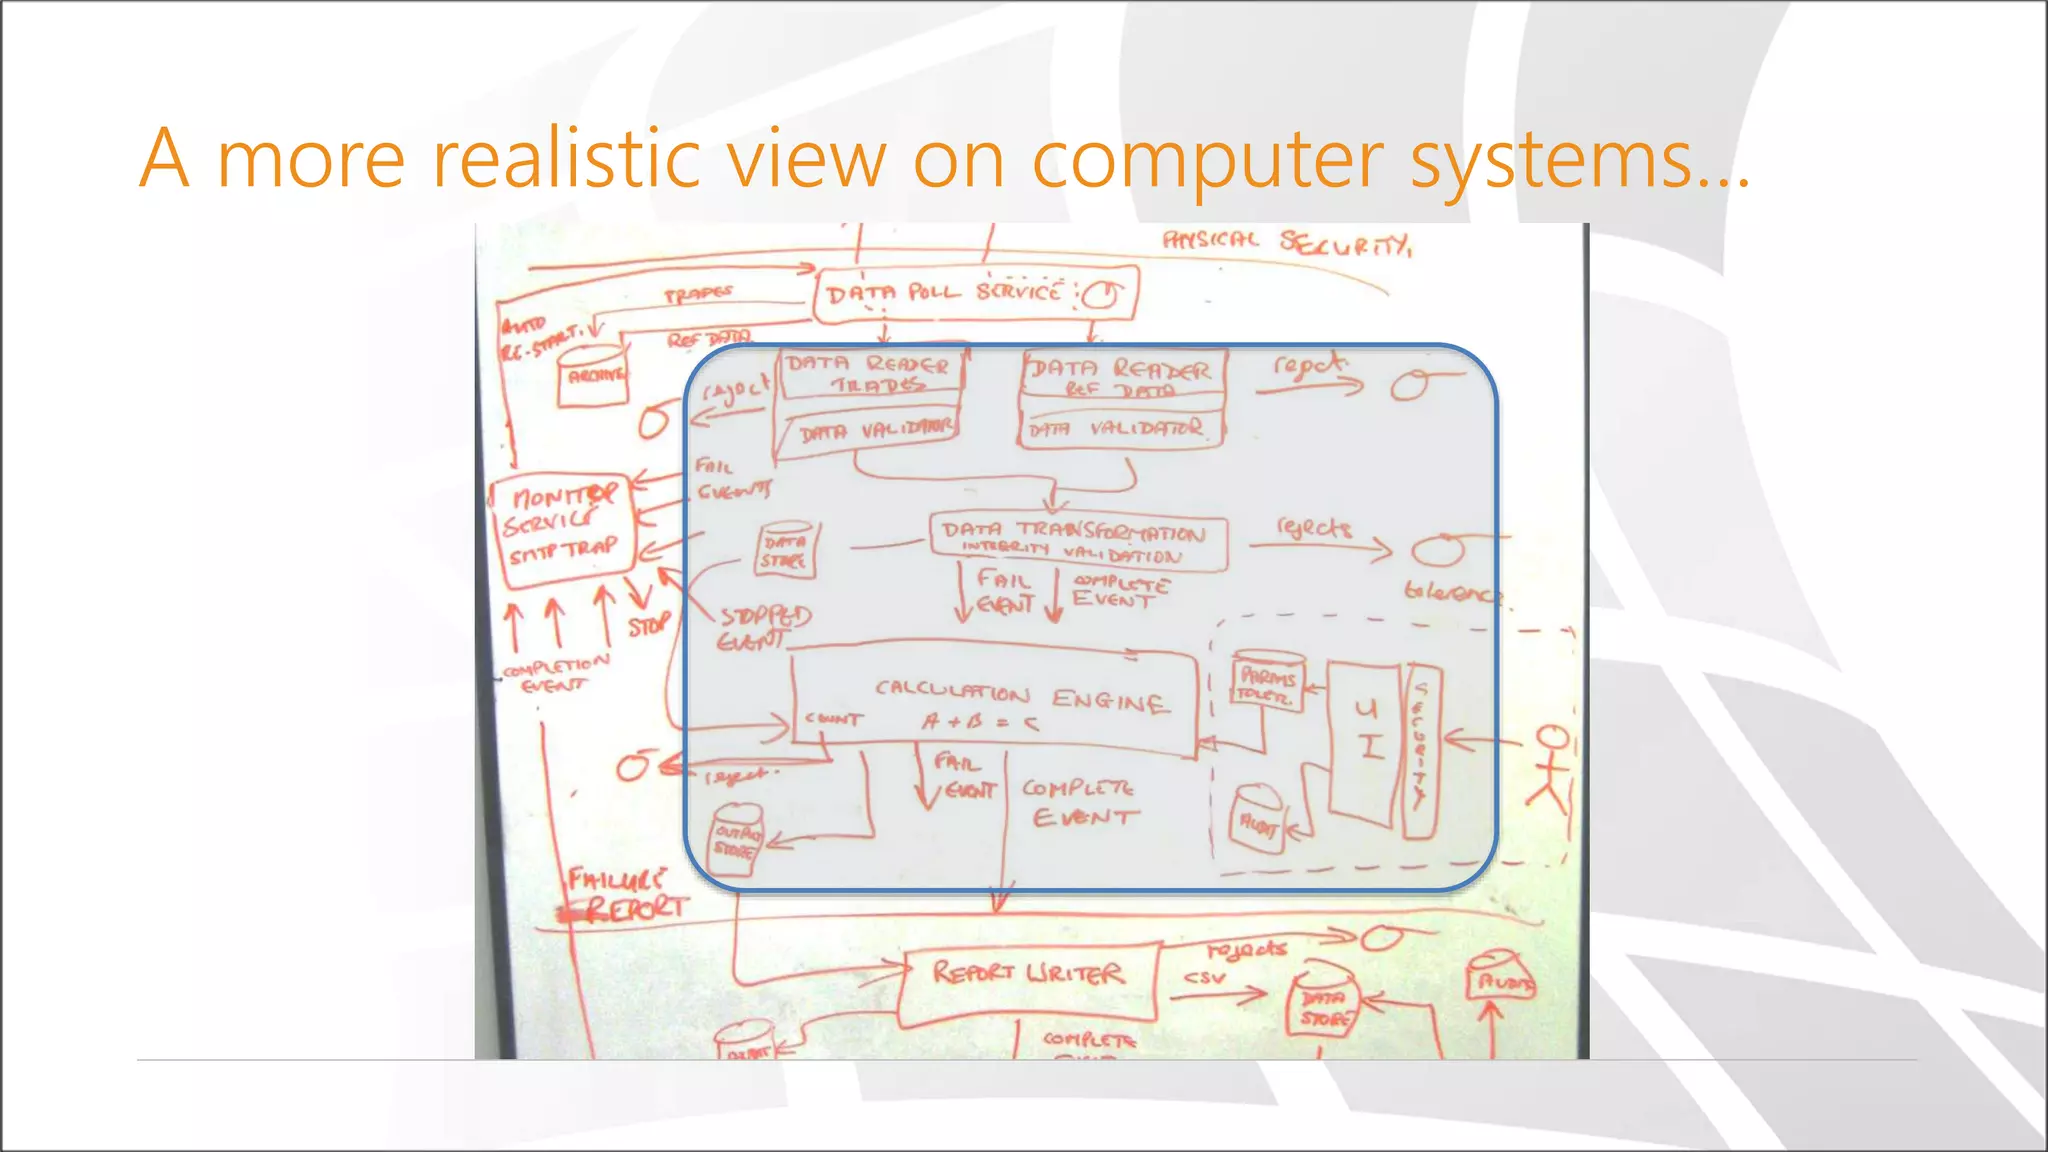 A more realistic view on computer systems...
PHYSICAL SECURITY.
DATA POLL SERVICE
TRADES
AUTO
RE-START.
REF DATA
ARCHIVE
DATA READER
TRADES
DATA VALIDATOR
DATA READER
REF DATA
DATA VALIDATOR
reject.
reject
FAIL
EVENTS
MONITOR
SERVICE
SMTP TRAP
DATA
STORE
DATA TRANSFORMATION
INTEGRITY VALIDATION
rejects
tolerance.
FAIL
EVENT
COMPLETE
EVENT
STOPPED
EVENT
STOP
COMPLETION
EVENT
CALCULATION ENGINE
COUNT
A + B = C
PARAMS
UI
SECURITY
AUDIT
reject.
FAIL
EVENT
COMPLETE
EVENT
OUTPUT
STORE
FAILURE
REPORT
REPORT WRITER
rejects
CSV
DATA
STORE
AUDIT
COMPLETE